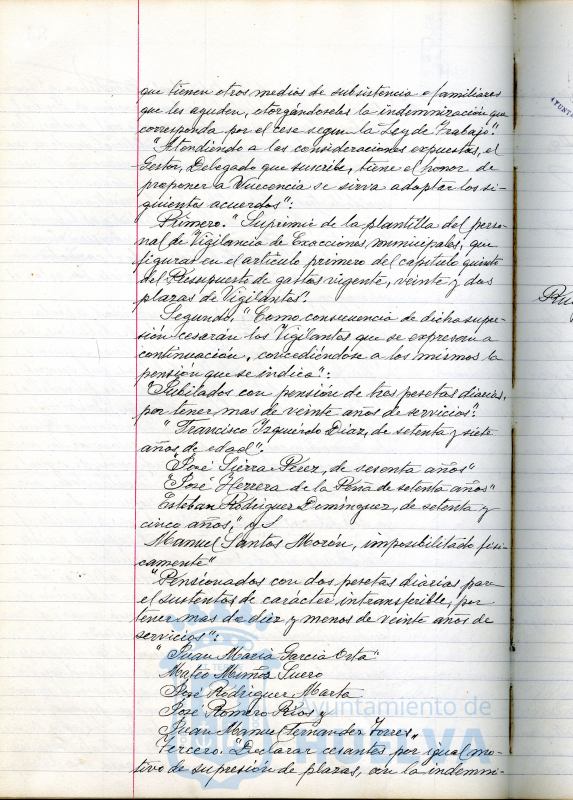 que tienen otros medios de subsistencia o familiares
que les ayuden, otorgándoseles la indemnización que
corresponda por el cese segun la Ley de Trabajo".
"Atendiéndo a las consideraciones expuestas, el
Gestor, Delegado que suscribe, tiene el honor de
proponer a Vuecencia se sirva adoptar los si-
guientes acuerdos":
"Primero." Suprimir de la plantilla del perso-
nal de Vigilancia de Exacciones municipales, que
figura en el artículo primero del capítulo quinto
del Presupuesto de gastos vigente, veinte y dos
plazas de Vigilantes".
Segundo. "Como consecuencia de dicha supre-
sión cesarán los Vigilantes que se expresan a
continuación, concediéndose a los mismos la
pensión que se indica":
"Jubilados con pensión de tres pesetas diarias,
por tener mas de veinte años de servicios".
"Francisco Izquierdo Diaz, de setenta y siete
años de edad".
"José Sierra Pérez, de sesenta años"
"José Herrera de la Peña de setenta años"
Esteban Rodriguez Domínguez, de setenta y
cinco años," y
Manuel Santos Morón, imposibilitado físi-
camente"
"Pensionados con dos pesetas diarias para
el sustento de carácter intransferible, por
tener mas de diez y menos de veinte años de
servicios":
"Juan Maria Garcia Orta"
Mateo Muñoz Suero
José Rodriguez Marta
José Romero Rios y
Juan Manuel Fernandez Torres"
Tercero. "Declarar cesantes por igual mo-
tivo de supresión de plazas, con la indemni-
Ayuntamiento de
HUELVA